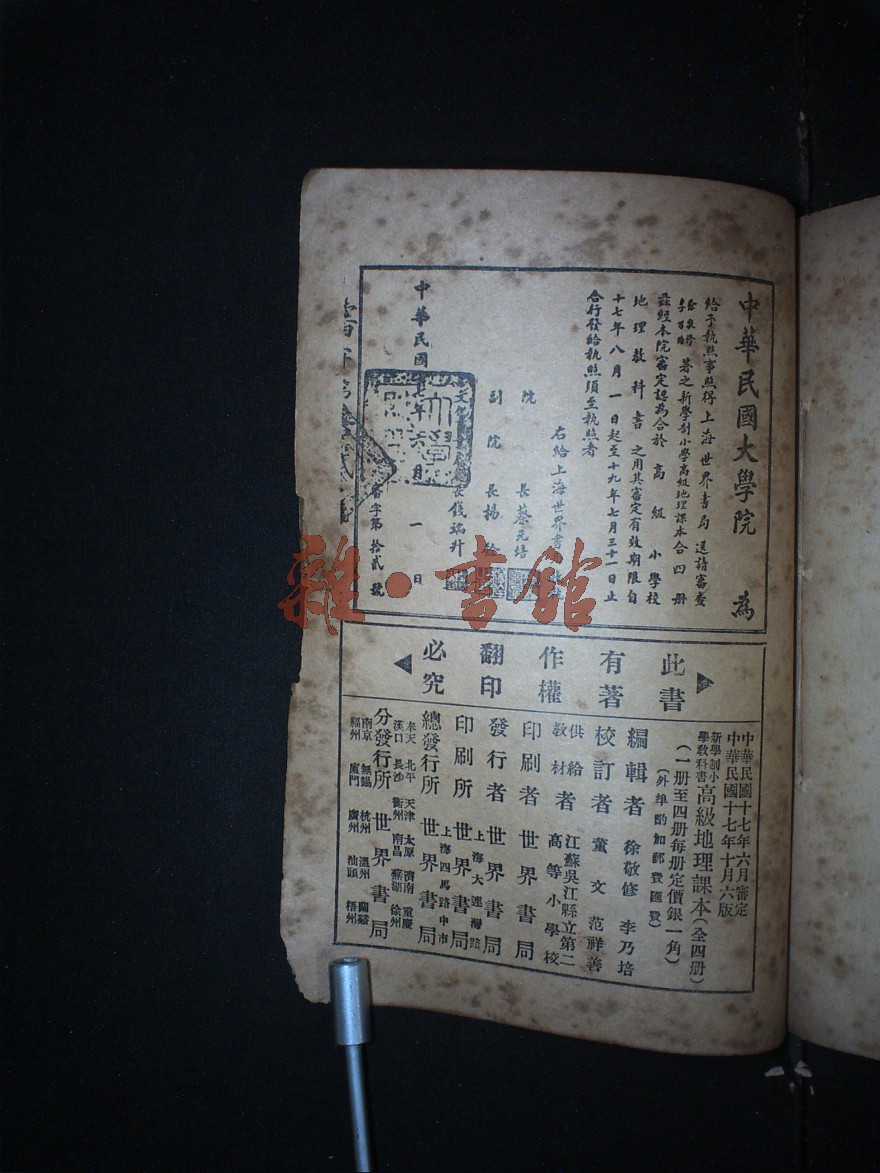 中華民國大學院 為
給予執照事照得上海世界書局 送請審查
著之新學制小學高級地理課本合四冊
茲經本院審定認為合於 高級小學校
地理教科書 之用其審定有效期限自
十七年八月一日起至十九年七月三十一日止
合行發給執照須至執照者
右給上海世界書
院 長蔡元培
副院 長楊
長錢端升
中華民國十七年六月 一 日
審字第拾貳號
此書
有著
作權
翻印
必究
中華民國十七年六月審定
中華民國十七年十月六版
新學制小學教科書 高級地理課本(全四冊)
(一冊至四冊每冊定價銀一角)
(外埠酌加郵費匯費)
編輯者 徐敬修 李乃培
校訂者 董文 范祥善
供給教材者 江蘇吳江縣立第二高等小學校
印刷者 世界書局
發行者 世界書局
印刷所 上海大連灣路 世界書局
總發行所 上海四馬路中市 世界書局
奉天 北平 天津 太原 濟南 重慶
漢口 長沙 衡州 南昌 蕪湖 徐州
分發行所 世界書局
南京 無錫 杭州 溫州 蘭谿
福州 廈門 廣州 汕頭 梧州
雜·書館